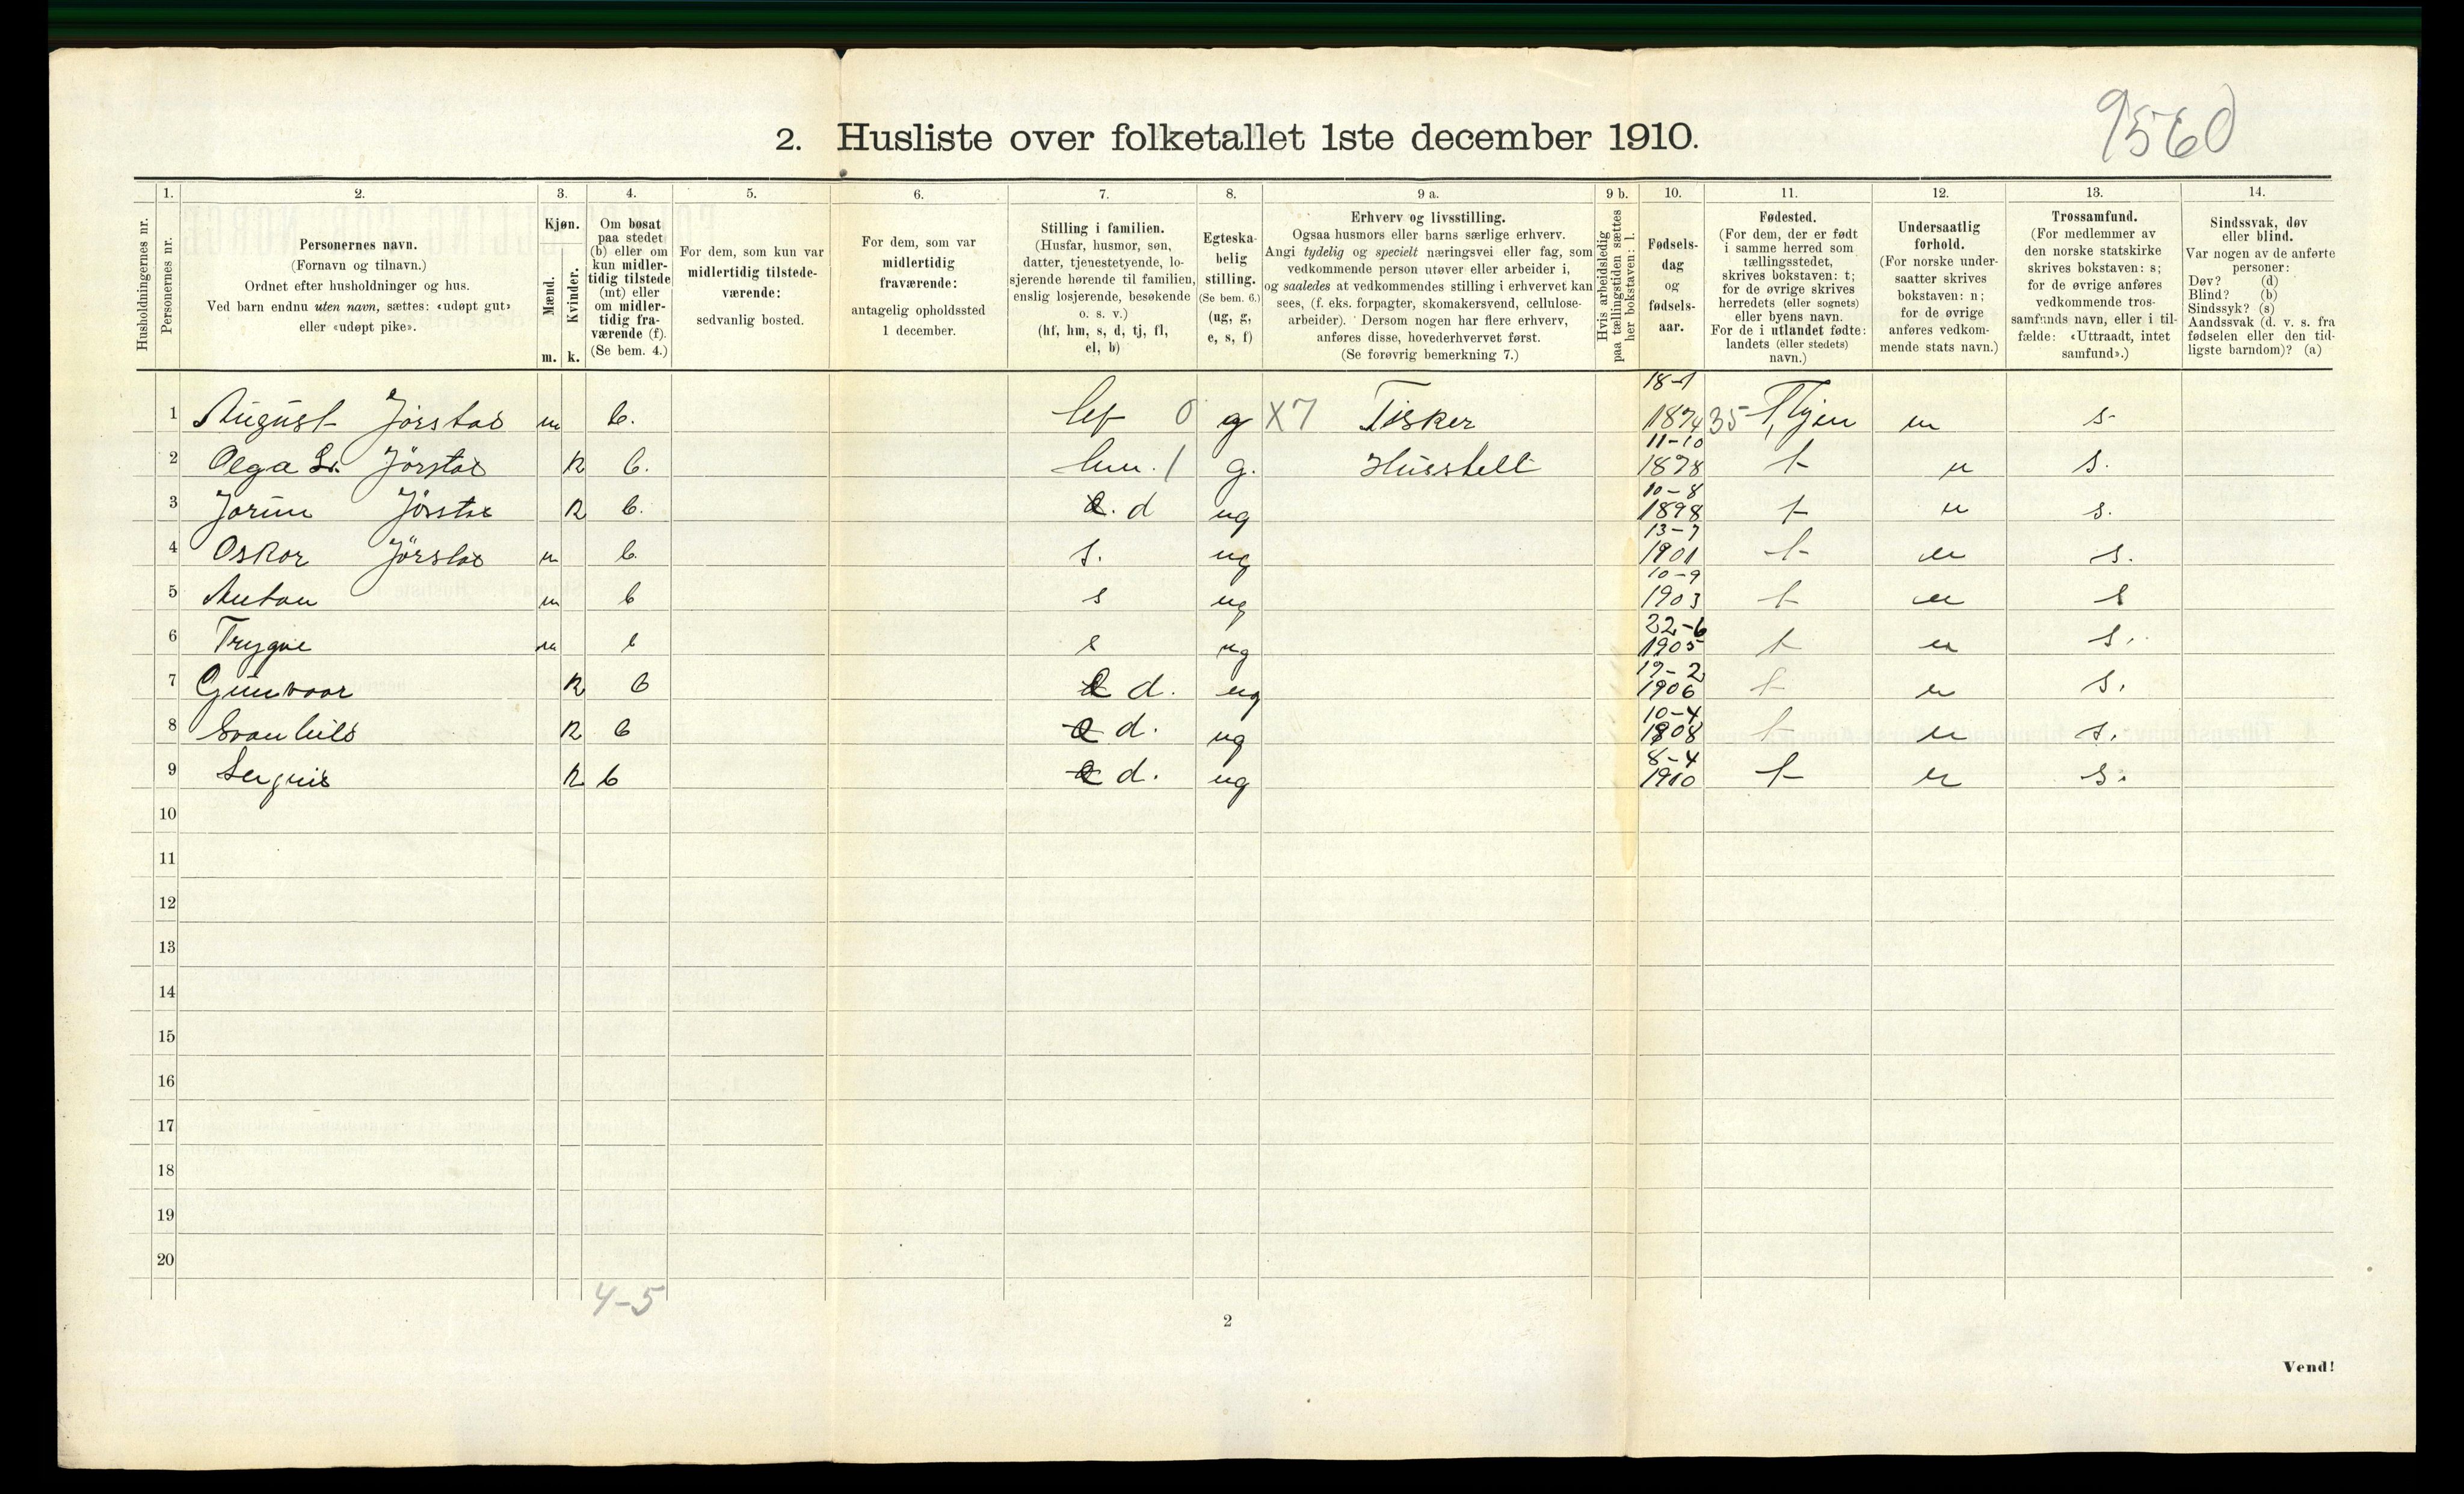 9560
2. Husliste over folketallet 1ste december 1910.
1. 2. 3. 4. 5. 6. 7. 8. 9 a. 9 b. 10. 11. 12. 13. 14.
Husholdningernes nr.
Personernes nr.
Personernes navn.
(Fornavn og tilnavn.)
Ordnet efter husholdninger og hus.
Ved barn endnu uten navn, sættes: «udøpt gut»
eller «udøpt pike».
Kjøn.
Mænd.
Kvinder.
m. k.
Om bosat
paa stedet
(b) eller om
kun midler-
tidig tilstede
(mt) eller
om midler-
tidig fra-
værende (f).
(Se bem. 4.)
For dem, som kun var
midlertidig tilstede-
værende:
sedvanlig bosted.
For dem, som var
midlertidig
fraværende:
antagelig opholdssted
1 december.
Stilling i familien.
(Husfar, husmor, søn,
datter, tjenestetyende, lo-
sjerende hørende til familien,
enslig losjerende, besøkende
o. s. v.)
(hf, hm, s, d, tj, fl,
el, b)
Egteska-
belig
stilling.
(Se bem. 6.)
(ug, g,
e, s, f)
Erhverv og livsstilling.
Ogsaa husmors eller barns særlige erhverv.
Angi tydelig og specielt næringsvei eller fag, som
vedkommende person utøver eller arbeider i,
og saaledes at vedkommendes stilling i erhvervet kan
sees, (f. eks. forpagter, skomakersvend, cellulose-
arbeider). Dersom nogen har flere erhverv,
anføres disse, hovederhvervet først.
(Se forøvrig bemerkning 7.)
Hvis arbeidsledig
paa tællingstiden sættes
her bokstaven: l.
Fødsels-
dag
og
fødsels-
aar.
Fødested.
(For dem, der er født
i samme herred som
tællingsstedet,
skrives bokstaven: t;
for de øvrige skrives
herredets (eller sognets)
eller byens navn.
For de i utlandet fødte:
landets (eller stedets)
navn.)
Undersaatlig
forhold.
(For norske under-
saatter skrives
bokstaven: n;
for de øvrige
anføres vedkom-
mende stats navn.)
Trossamfund.
(For medlemmer av
den norske statskirke
skrives bokstaven: s;
for de øvrige anføres
vedkommende tros-
samfunds navn, eller i til-
fælde: «Uttraadt, intet
samfund».)
Sindssvak, døv
eller blind.
Var nogen av de anførte
personer:
Døv? (d)
Blind? (b)
Sindssyk? (s)
Aandssvak (d. v. s. fra
fødselen eller den tid-
ligste barndom)? (a)
18-1
1 August Jørstad m b. hf 0 g X7 Fisker 1874 35 n s
11-10
2 Olga Jørstad k b. hm. 1 g. Husstell 1878 t n s.
10-8
3 Jørstad k b. d ug 1898 t n s.
13-7
4 Oskar Jørstad m b. s. ug 1901 t n s.
10-9
5 Anton m b s ug 1903 t n s
22-6
6 Trygve m b s ug 1905 t n s.
19-2
7 Gunvoor k b d. ug 1906 t n s.
10-4
8 Svanhild k b d. ug 1908 t n s.
8-4
9 k b d. ug 1910 t n s.
10
11
12
13
14
15
16
17
18
19
20
4-5
2
Vend!